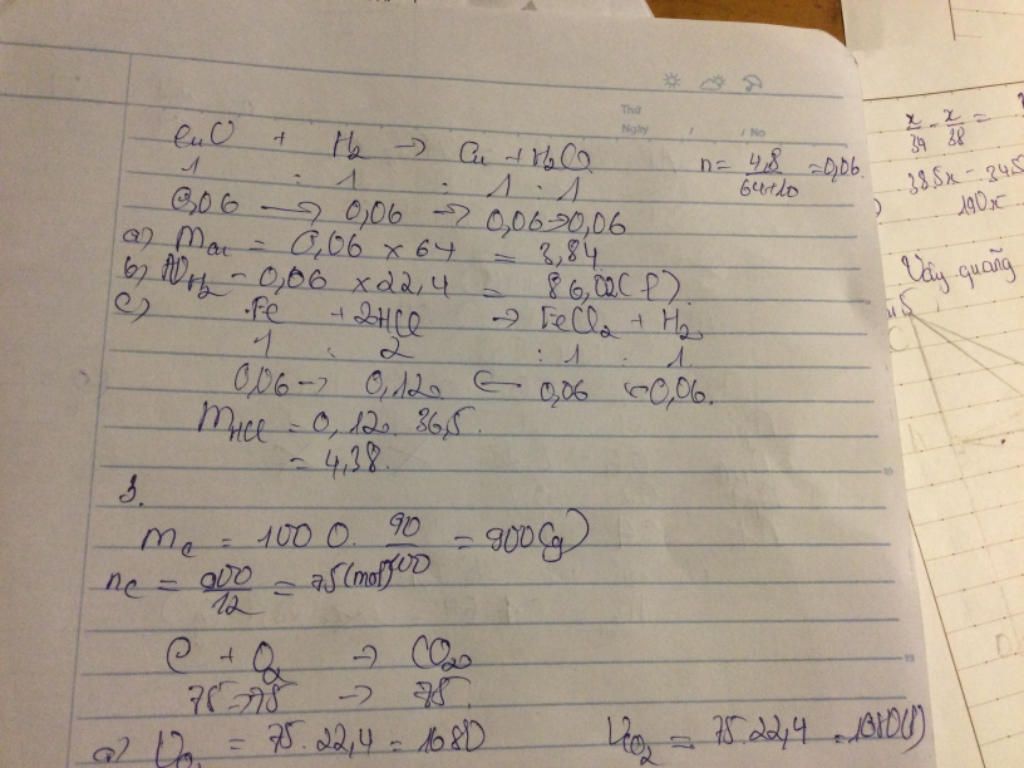 Thứ
Ngày / / No
CuO + H2 → Cu + H2O n = 4,8 / 64+16 = 0,06
1 : 1 : 1 : 1
0,06 → 0,06 → 0,06 → 0,06
a) mCu = 0,06 × 64 = 3,84
b) VH2 = 0,06 × 22,4 =
c) Fe + 2HCl → FeCl2 + H2
1 : 2 : 1 : 1
0,06 → 0,12 ← 0,06 ← 0,06.
mHCl = 0,12 . 36,5
= 4,38.
3.
mC = 1000. 90/100 = 900(g)
nC = 900/12 = 75(mol)
C + O2 → CO2
75 → 75 → 75
a) VO2 = 75.22,4 = 1680 VCO2 = 75.22,4 = 1680(l)
x/39 - x/38 =
190x
Vậy quãng